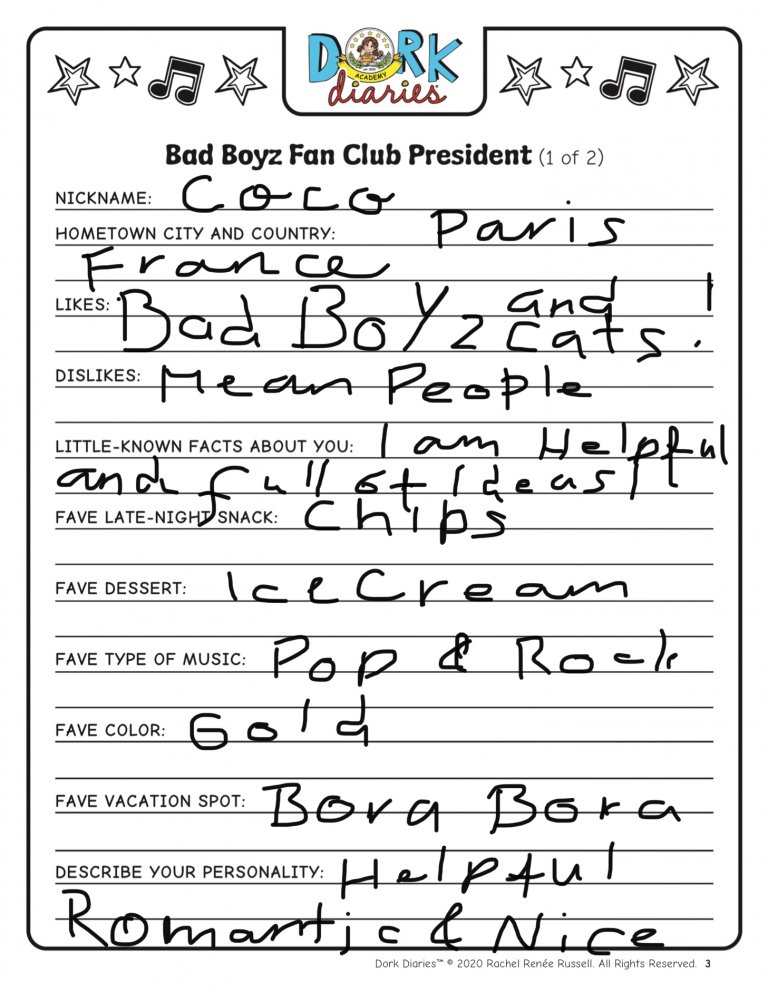 DORK
ACADEMY
diaries
Bad Boyz Fan Club President (1 of 2)
NICKNAME: Coco
HOMETOWN CITY AND COUNTRY: Paris
France
LIKES: Bad Boyz and cats.
DISLIKES: Mean People
LITTLE-KNOWN FACTS ABOUT YOU: I am Helpful
and full of Ideas!
FAVE LATE-NIGHT SNACK: Chips
FAVE DESSERT: Ice Cream
FAVE TYPE OF MUSIC: Pop & Rock
FAVE COLOR: Gold
FAVE VACATION SPOT: Bora Bora
DESCRIBE YOUR PERSONALITY: Helpful
Romantic & Nice
Dork Diaries™ © 2020 Rachel Renée Russell. All Rights Reserved. 3